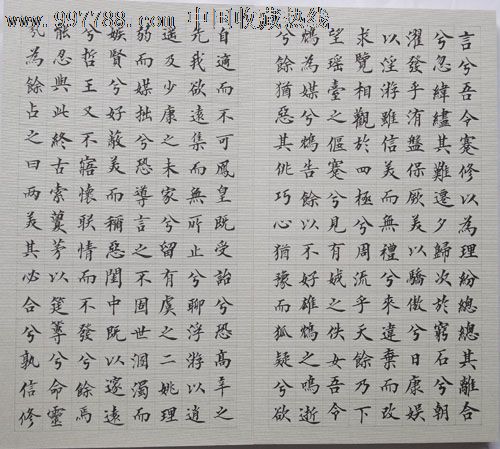 www.997788.com 中国收藏热线
言兮吾令蹇修以為理紛總總其離合
兮忽緯繣其難遷夕歸次於窮石兮朝
濯發乎洧盤保厥美以驕傲兮日康娛
以淫游雖信美而無禮兮來違棄而改
求覽相觀於四極兮周流乎天餘乃下
望瑤臺之偃蹇兮見有娀之佚女吾令
鴆為媒兮鴆告餘以不好雄鴆之鳴逝
兮餘猶惡其佻巧心猶豫而狐疑兮欲
自適而不可鳳皇既受詒兮恐高辛之
先我欲遠集而無所止兮聊浮游以逍
遙及少康之未家兮留有虞之二姚理
弱而媒拙兮恐導言之不固世溷濁而
嫉賢兮好蔽美而稱惡閨中既以邃遠
兮哲王又不寤懷朕情而不發兮餘焉
能忍與此終古索藑茅以筳篿兮命靈
氛為餘占之曰兩美其必合兮孰信修